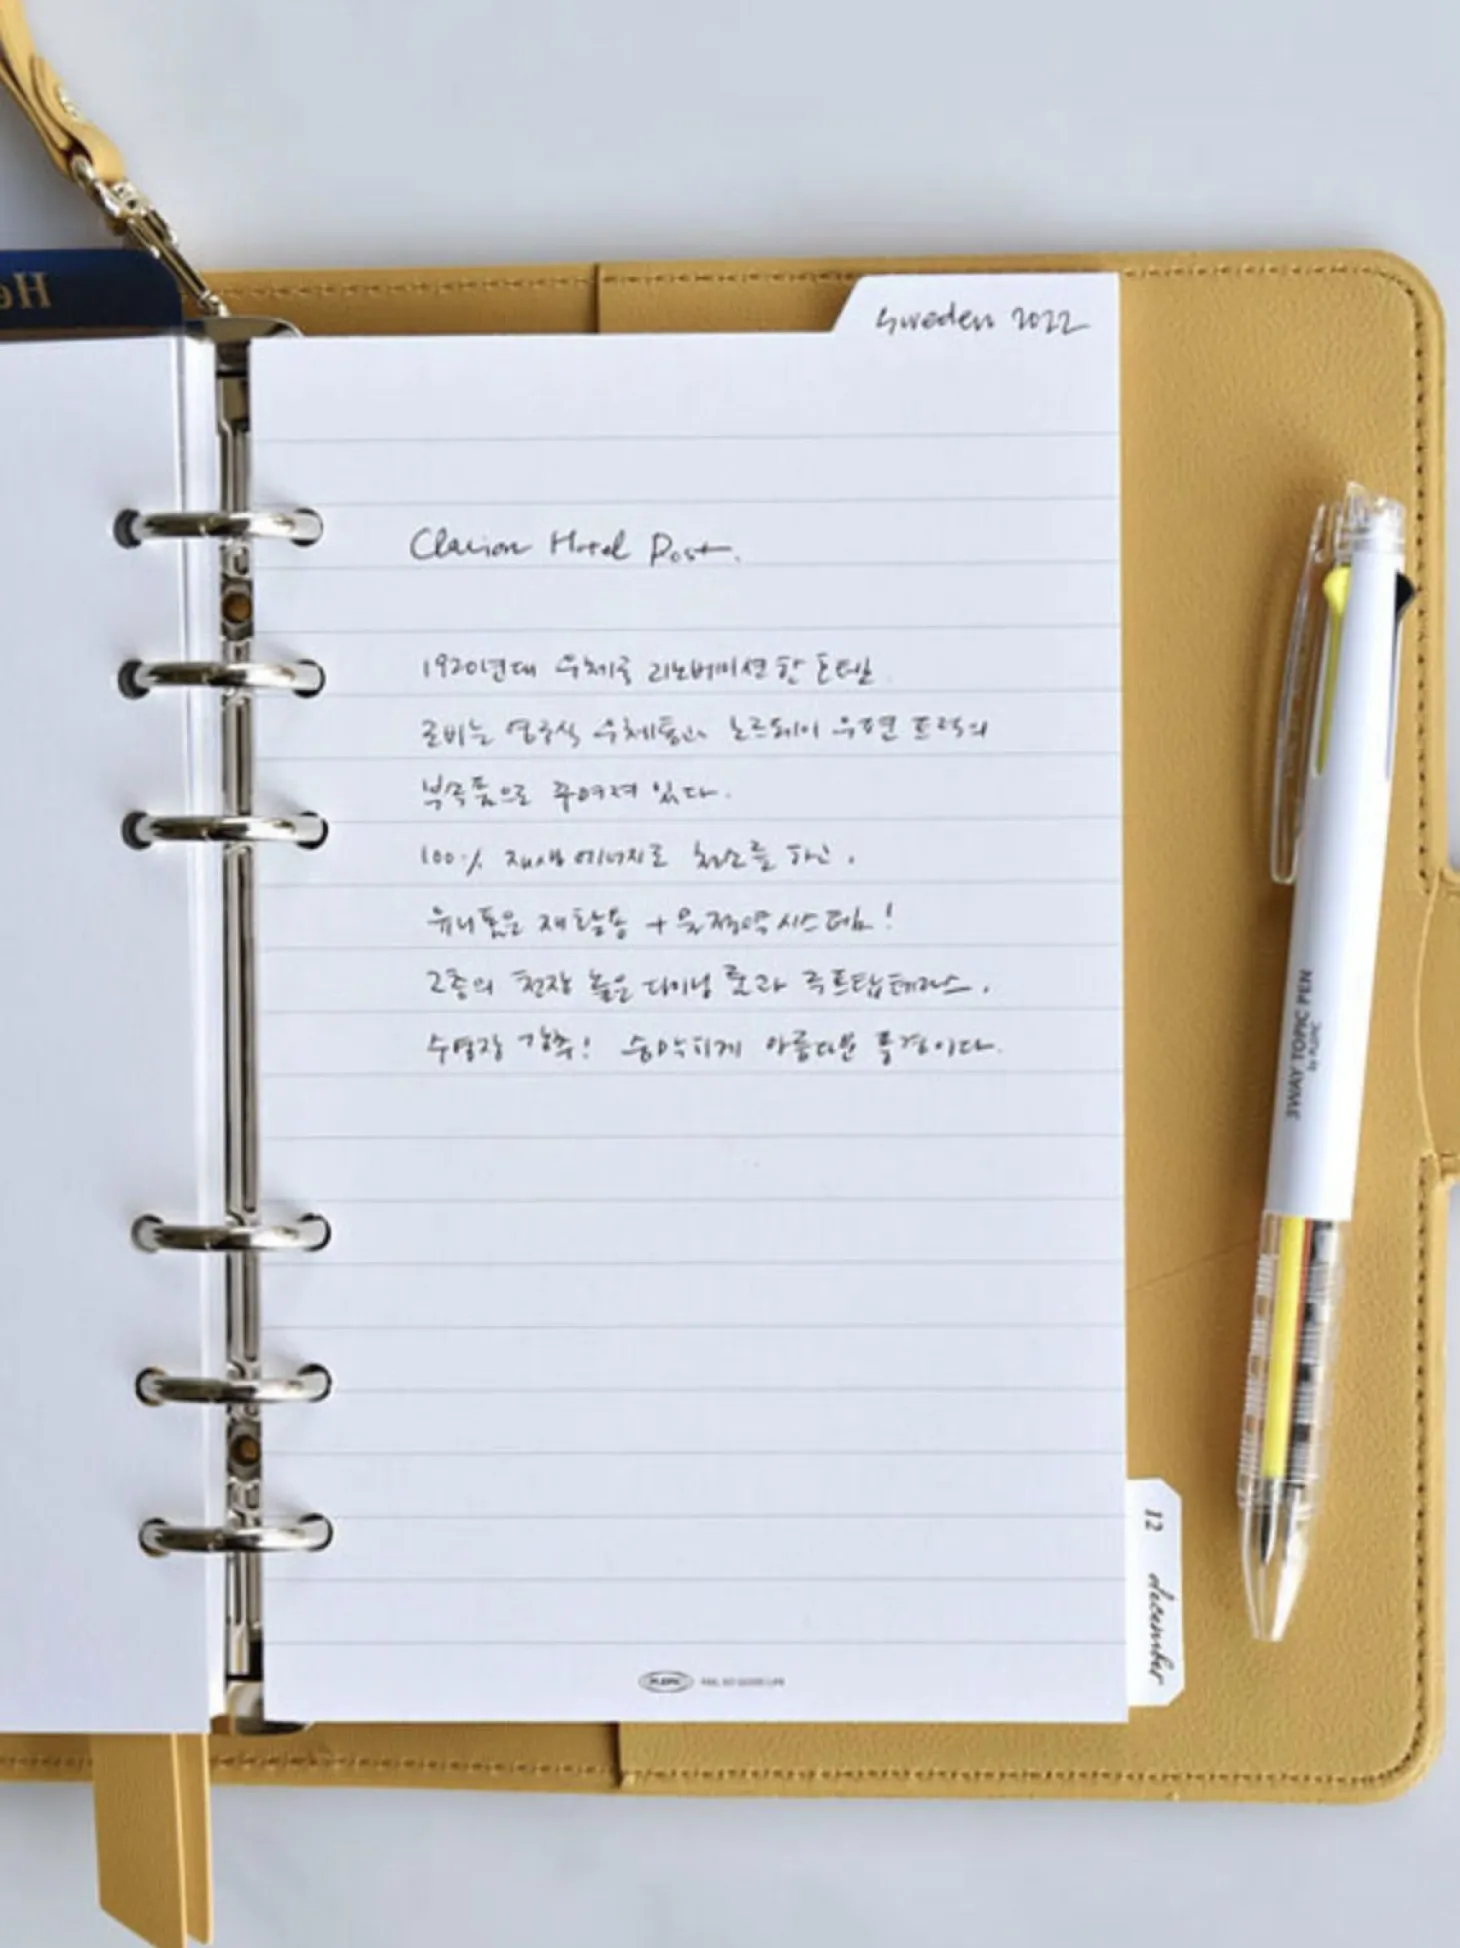 Sweden 2022
Clarion Hotel Post.
1920년대 우체국 리노베이션한 호텔
로비는 영국식 우체통과 노르웨이 우편 트럭의
부속품으로 꾸며져 있다.
100% 재생에너지로 청소를 하고,
유니폼은 재활용 + 물절약 시스템!
2층의 천장 높은 다이닝 룸과 루프탑테라스.
수영장 강추! 숨막히게 아름다운 풍경이다.
3WAY TOPIC PEN
by PLEPIC
12 december
PLEPIC